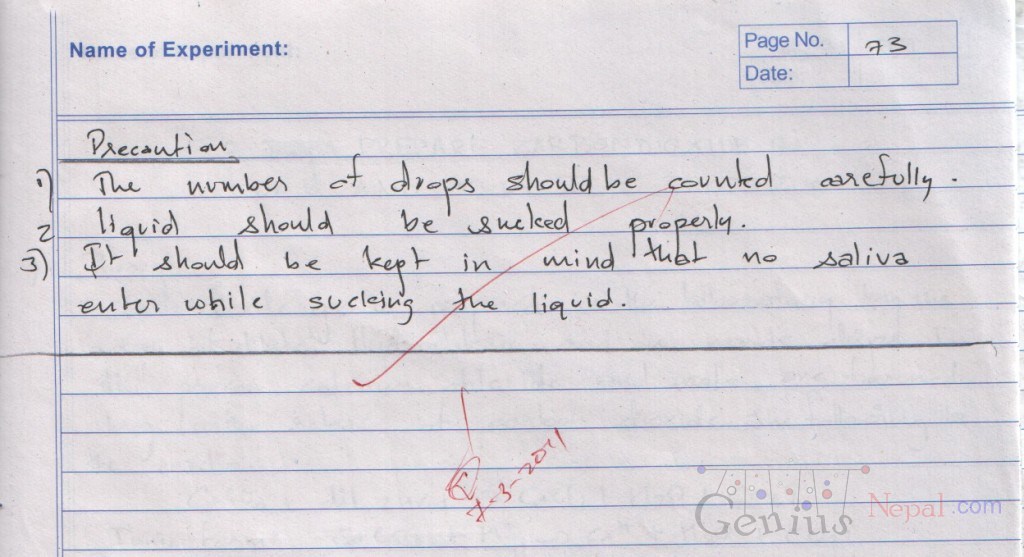 Name of Experiment:
Page No. 73
Date:
Precaution
1) The number of drops should be counted carefully.
2 liquid should be sucked properly.
3) It should be kept in mind that no saliva
enter while sucking the liquid.
Genius Nepal.com